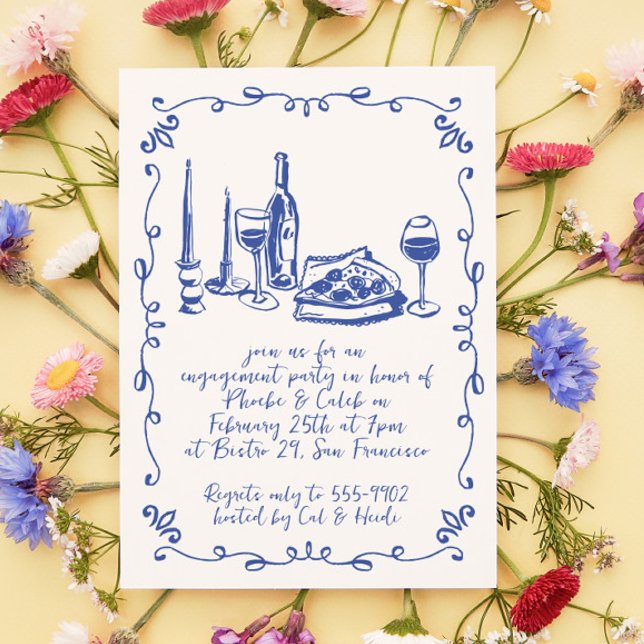 join us for an
engagement party in honor of
Phoebe & Caleb on
February 25th at 7pm
at Bistro 29, San Francisco
Regrets only to 555-9902
hosted by Cal & Heidi